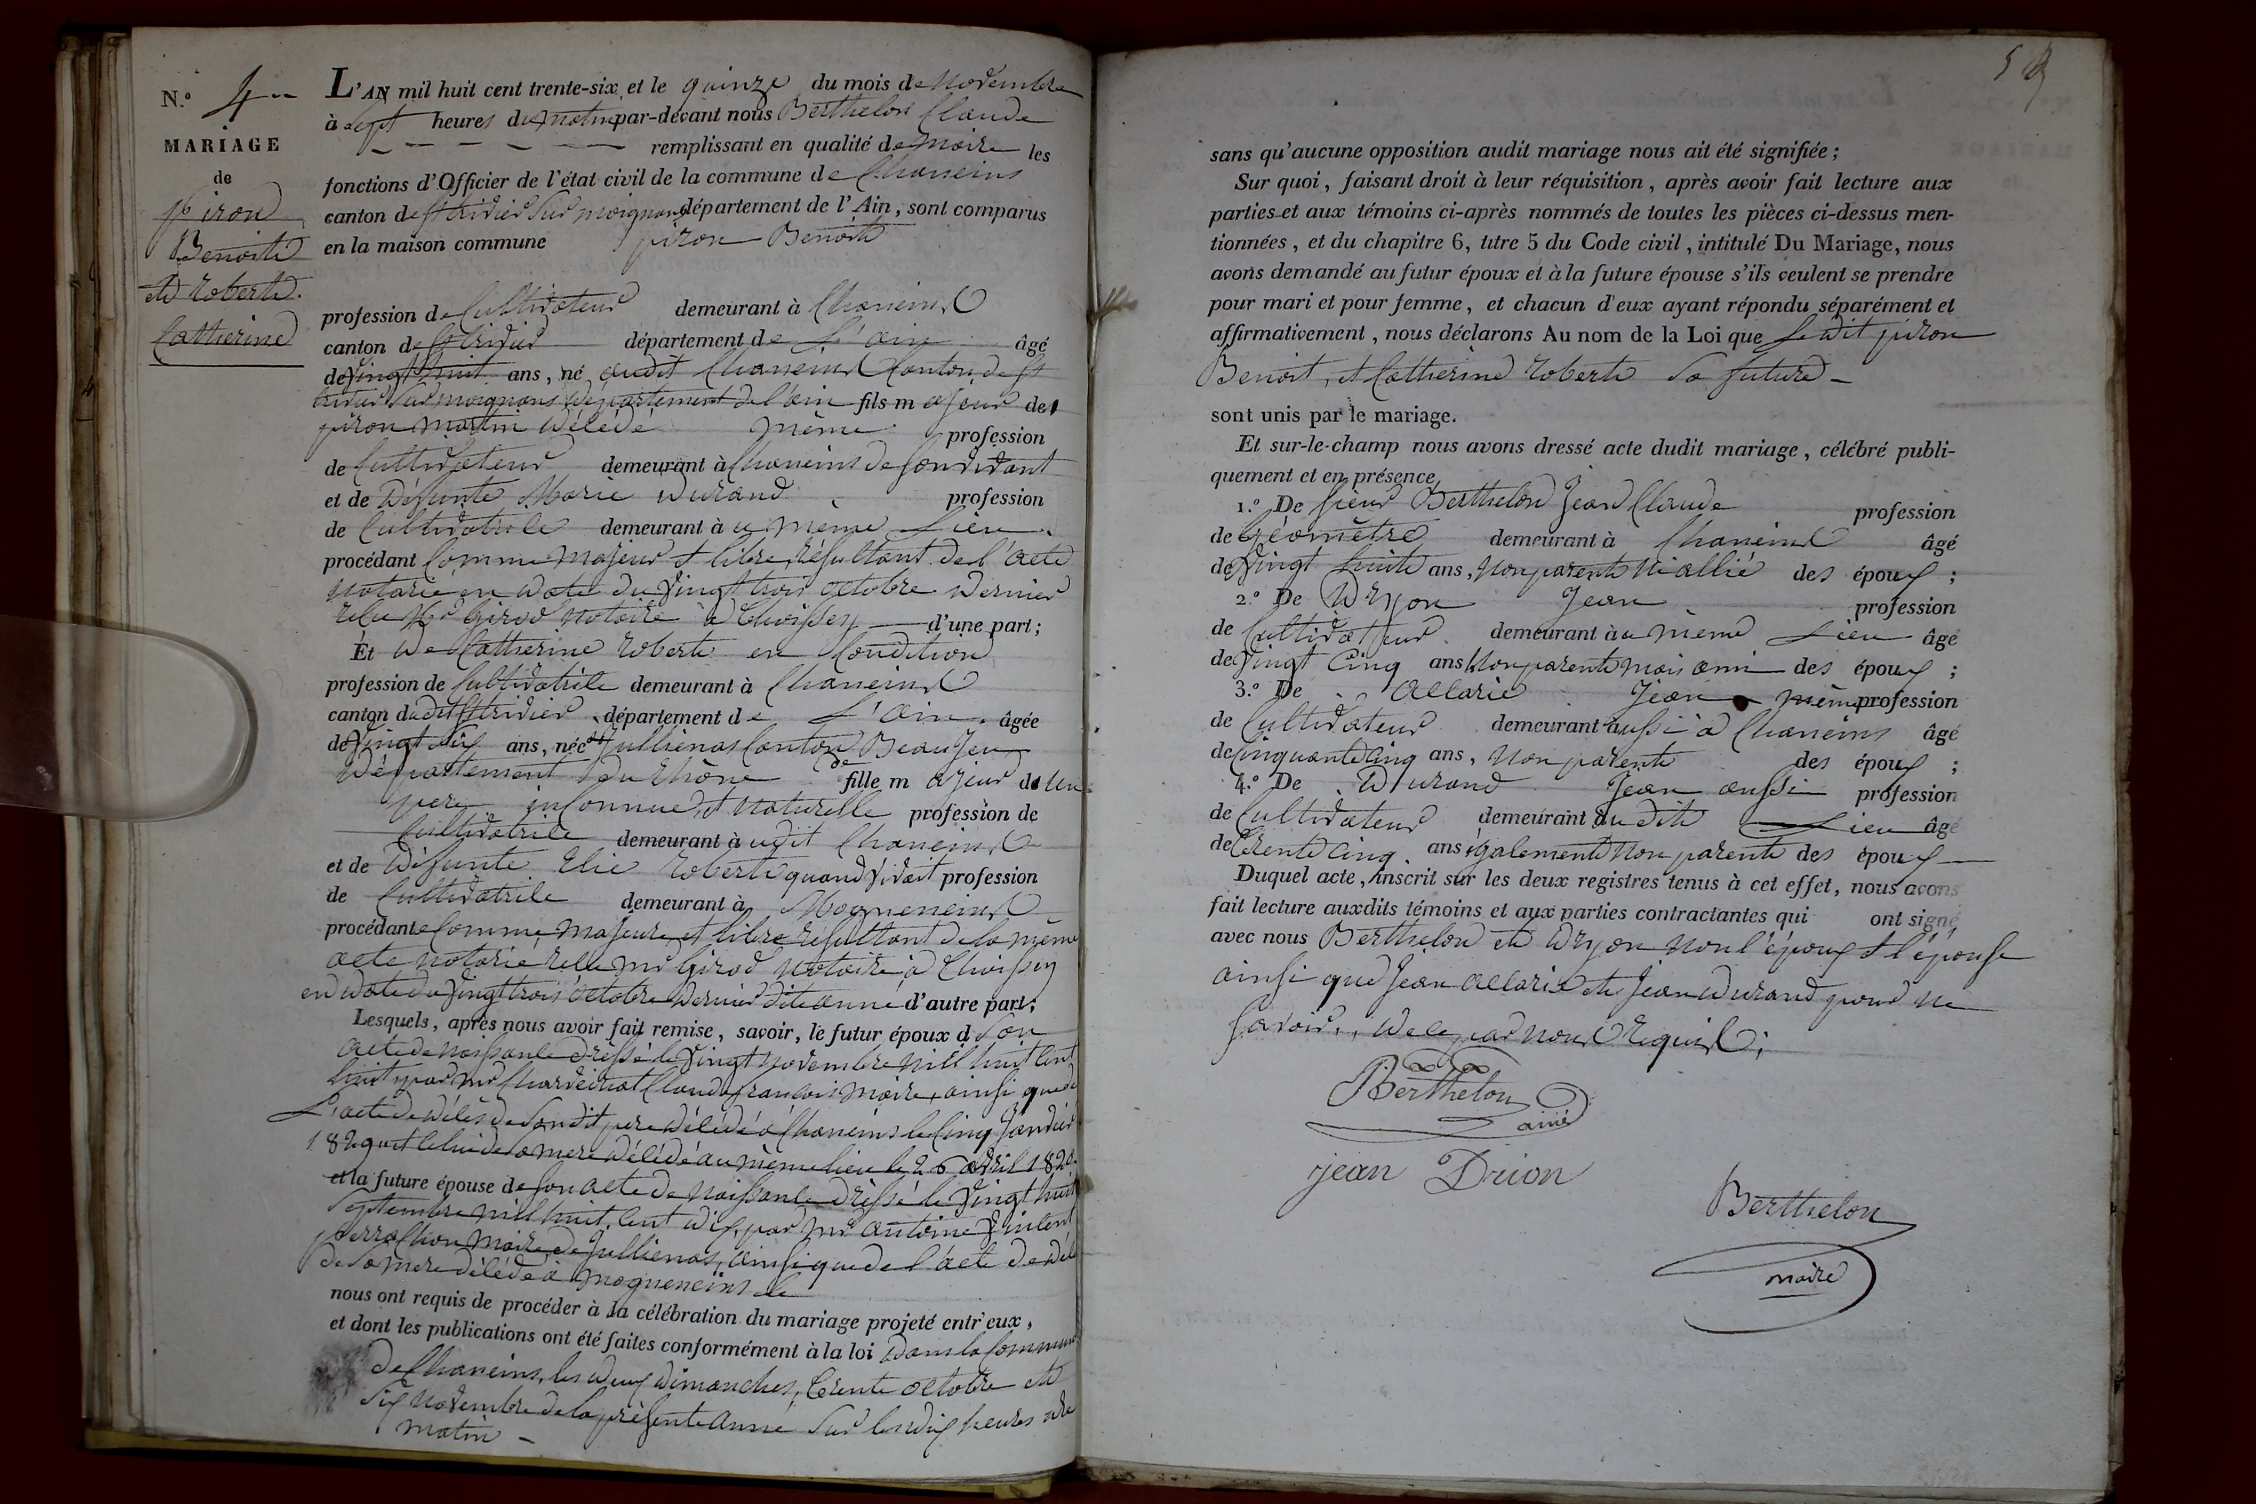 N.º 4
MARIAGE
de
piron
Benoit
et Robert
Catherine
L'AN mil huit cent trente-six, et le quinze du mois de Novembre
à Sept heures du matin par-devant nous Berthelon Claude
remplissant en qualité de maire les
fonctions d'Officier de l'état civil de la commune de Chaneins
canton de St trivier Sur moignans département de l'Ain, sont comparus
en la maison commune piron Benoit
profession de Cultivateur demeurant à Chaneins
canton de St trivier département de L'ain âgé
de vingt huit ans, né audit Chaneins Canton de St
trivier Sur moignans département de l'ain fils majeur de
piron martin décédé même profession
de Cultivateur demeurant à Chaneins de Son vivant
et de défunte Marie Durand profession
de Cultivatrice demeurant à u même Lieu
procédant Comme majeur et libre résultant de l'acte
notarié en date du vingt trois octobre dernier
reçu Mr Girod notaire à Thoissey d'une part;
Et de Catherine Robert en Condition
profession de Cultivatrice demeurant à Chaneins
canton dudit St trivier département de L'ain âgée
de vingt Six ans, née à Jullienas Canton Beaujeu
Département du Rhône fille majeur de un
pere inconnue et naturelle profession de
Cultivatrice demeurant à udit Chaneins
et de défunte Elie Robert quand vivait profession
de Cultivatrice demeurant à Mogneneins
procédant Comme majeure et libre résultant de la même
acte notarié reçu mr Girod notaire à Thoissey
en date du vingt trois octobre dernier dite année d'autre part;
Lesquels, après nous avoir fait remise, savoir, le futur époux d Son
acte de naissance dressé le vingt novembre mill huit cent
huit par mr Claude françois maire, ainsi que de
L'acte de décès de Son dit pere décédé à Chaneins le Cinq Janvier
et Celui de Sa mere décédé au même lieu le 26 avril
et la future épouse de Son acte de naissance dressé le vingt huit
Septembre mill huit cent dix, par mr antoine vincent
perrachon maire de Jullienas, ainsi que de l'acte de décè
de Sa mere décédé à mogneneins le
nous ont requis de procéder à la célébration du mariage projeté entr'eux,
et dont les publications ont été faites conformément à la loi dans la Commune
de Chaneins, les deux dimanches, trente octobre et
Six novembre de la présente année Sur les dix heures du
matin
sans qu'aucune opposition audit mariage nous ait été signifiée;
Sur quoi, faisant droit à leur réquisition, après avoir fait lecture aux
parties et aux témoins ci-après nommés de toutes les pièces ci-dessus men-
tionnées, et du chapitre 6, titre 5 du Code civil, intitulé Du Mariage, nous
avons demandé au futur époux et à la future épouse s'ils veulent se prendre
pour mari et pour femme, et chacun d'eux ayant répondu séparément et
affirmativement, nous déclarons Au nom de la Loi que Le dit piron
Benoit, et Catherine Robert Sa future
sont unis par le mariage.
Et sur-le-champ nous avons dressé acte dudit mariage, célébré publi-
quement et en présence
1.º De Sieur Berthelon Jean Claude profession
de Géomètre demeurant à Chaneins âgé
de vingt huit ans, Non parent ni allié des époux;
2.º De Dryon Jean profession
de Cultivateur demeurant à u même Lieu âgé
de vingt Cinq ans Non parent mais ami des époux;
3.º De allarie Jean même profession
de Cultivateur demeurant aussi à Chaneins âgé
de Cinquante Cinq ans, Non parent des époux;
4.º De Durand Jean aussi profession
de Cultivateur demeurant au dit Lieu âgé
de Trente Cinq ans également Non parent des époux
Duquel acte, inscrit sur les deux registres tenus à cet effet, nous avons
fait lecture auxdits témoins et aux parties contractantes qui ont signé,
avec nous Berthelon et Dryon non l'époux et l'épouse
ainsi que Jean allarie et Jean Durand pour ne
Savoir, de ce par nous Requis;
Berthelon
ainé
jean Drion
Berthelon
maire